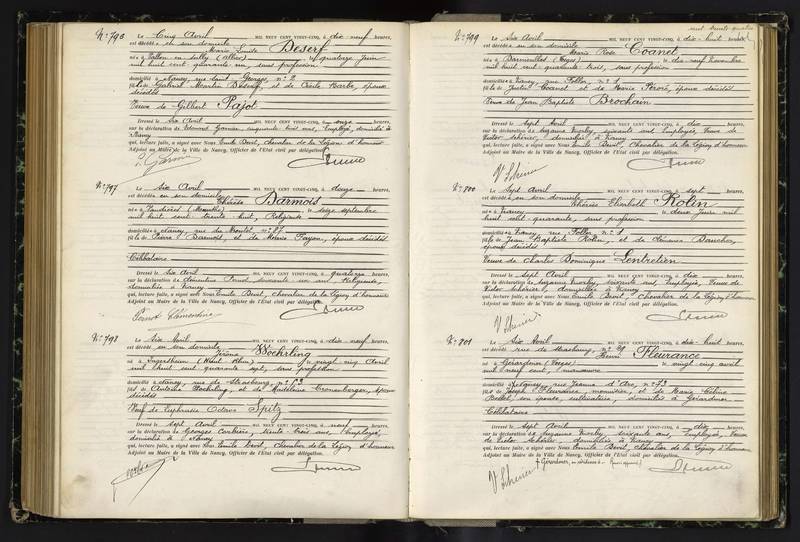 N° 796 Le Cinq Avril MIL NEUF CENT VINGT-CINQ, à dix-neuf heures,
est décédée en son domicile Marie Louise Deserf
née à Vallon en Sully (Allier) quatorze juin
mil huit cent quarante un, sans profession
domiciliée à Nancy, rue Saint Georges n° 2
fille de Gabriel Martin Deserf, et de Cécile Barbe, époux
décédés
Veuve de Gilbert Pajot
Dressé le Six Avril MIL NEUF CENT VINGT-CINQ, onze heures,
sur la déclaration de Edmond Garnier, cinquante trois ans, Employé, domicilié à
Nancy
qui, lecture faite, a signé avec Nous Emile Devit, chevalier de la Légion d'honneur
Adjoint au Maire de la Ville de Nancy, Officier de l'Etat civil par délégation.
N° 797 Le Six Avril MIL NEUF CENT VINGT-CINQ, à douze heures,
est décédée en son domicile Thérèse Barmois
née à Vandières (Meurthe) le douze septembre
mil huit cent trente huit, Religieuse
domiciliée à Nancy, rue du Montet n° 87
fille de Pierre Barmois, et de Marie Fayon, époux décédés
Célibataire
Dressé le Six Avril MIL NEUF CENT VINGT-CINQ, à quatorze heures,
sur la déclaration de Clémentine Pernot, soixante un ans, Religieuse,
domiciliée à Nancy
qui, lecture faite, a signé avec Nous Emile Devit, chevalier de la Légion d'honneur
Adjoint au Maire de la Ville de Nancy, Officier de l'Etat civil par délégation.
Pernot Clémentine
N° 798 Le Six Avril MIL NEUF CENT VINGT-CINQ, à dix-neuf heures,
est décédé en son domicile Jérôme Woehrling
né à Ingersheim (Haut Rhin) le vingt cinq Avril
mil huit cent quarante sept, sans profession
domicilié à Nancy, rue de Strasbourg n°
fils de Antoine Woehrling, et de Madeleine Cronenberger, époux
décédés
Veuf de Euphrasie Odane Spitz
Dressé le Sept Avril MIL NEUF CENT VINGT-CINQ, à neuf heures,
sur la déclaration de Georges trente trois ans, Employé,
domicilié à Nancy
qui, lecture faite, a signé avec Nous Emile Devit, chevalier de la Légion d'honneur
Adjoint au Maire de la Ville de Nancy, Officier de l'Etat civil par délégation.
N° 799 Le Six Avril MIL NEUF CENT VINGT-CINQ, à dix-huit heures,
est décédée en son domicile Marie Rose Coanet
née à Darmieulles (Vosges) le dix neuf Novembre
mil huit cent quarante trois, sans profession
domiciliée à Nancy, rue Foller n° 1
fille de Justin Coanet et de Marie époux décédés
Veuve de Jean Baptiste Brochain
Dressé le Sept Avril MIL NEUF CENT VINGT-CINQ, à dix heures,
sur la déclaration de Suzanne soixante ans, Employée, Veuve de
Victor Scherier, domiciliée à Nancy
qui, lecture faite, a signé avec Nous Emile Devit, Chevalier de la Légion d'honneur
Adjoint au Maire de la Ville de Nancy, Officier de l'Etat civil par délégation.
V Scherier
N° 800 Le Sept Avril MIL NEUF CENT VINGT-CINQ, à sept heures,
est décédée en son domicile Thérèse Elisabeth Rolin
née à Nancy le deux Juin mil
huit cent quarante, sans profession
domiciliée à Nancy, rue Foller n° 1
fille de Jean Baptiste Rolin, et de
époux décédés
Veuve de Charles Dominique Lentretien
Dressé le Sept Avril MIL NEUF CENT VINGT-CINQ, à dix heures,
sur la déclaration de Suzanne soixante ans, Employée, Veuve de
Victor Scherier, domiciliée à Nancy
qui, lecture faite, a signé avec Nous Emile Devit, Chevalier de la Légion d'honneur
Adjoint au Maire de la Ville de Nancy, Officier de l'Etat civil par délégation.
V Scherier
N° 801 Le Six Avril MIL NEUF CENT VINGT-CINQ, à dix-huit heures,
est décédé rue de Strasbourg, n° Henri Fleurance
né à Gérardmer (Vosges) le vingt cinq Avril
mil neuf cent, manœuvre
domicilié à Nancy, rue Jeanne d'Arc, n° 73
fils de Joseph Fleurance, manœuvre, et de Marie Céline
son épouse, domiciliés à Gérardmer
Célibataire
Dressé le Sept Avril MIL NEUF CENT VINGT-CINQ, à dix heures,
sur la déclaration de Suzanne soixante ans, Employée, Veuve
de Victor Scherier, domiciliée à Nancy
qui, lecture faite, a signé avec Nous Emile Devit, chevalier de la Légion d'honneur
Adjoint au Maire de la Ville de Nancy, Officier de l'Etat civil par délégation.
V Scherier